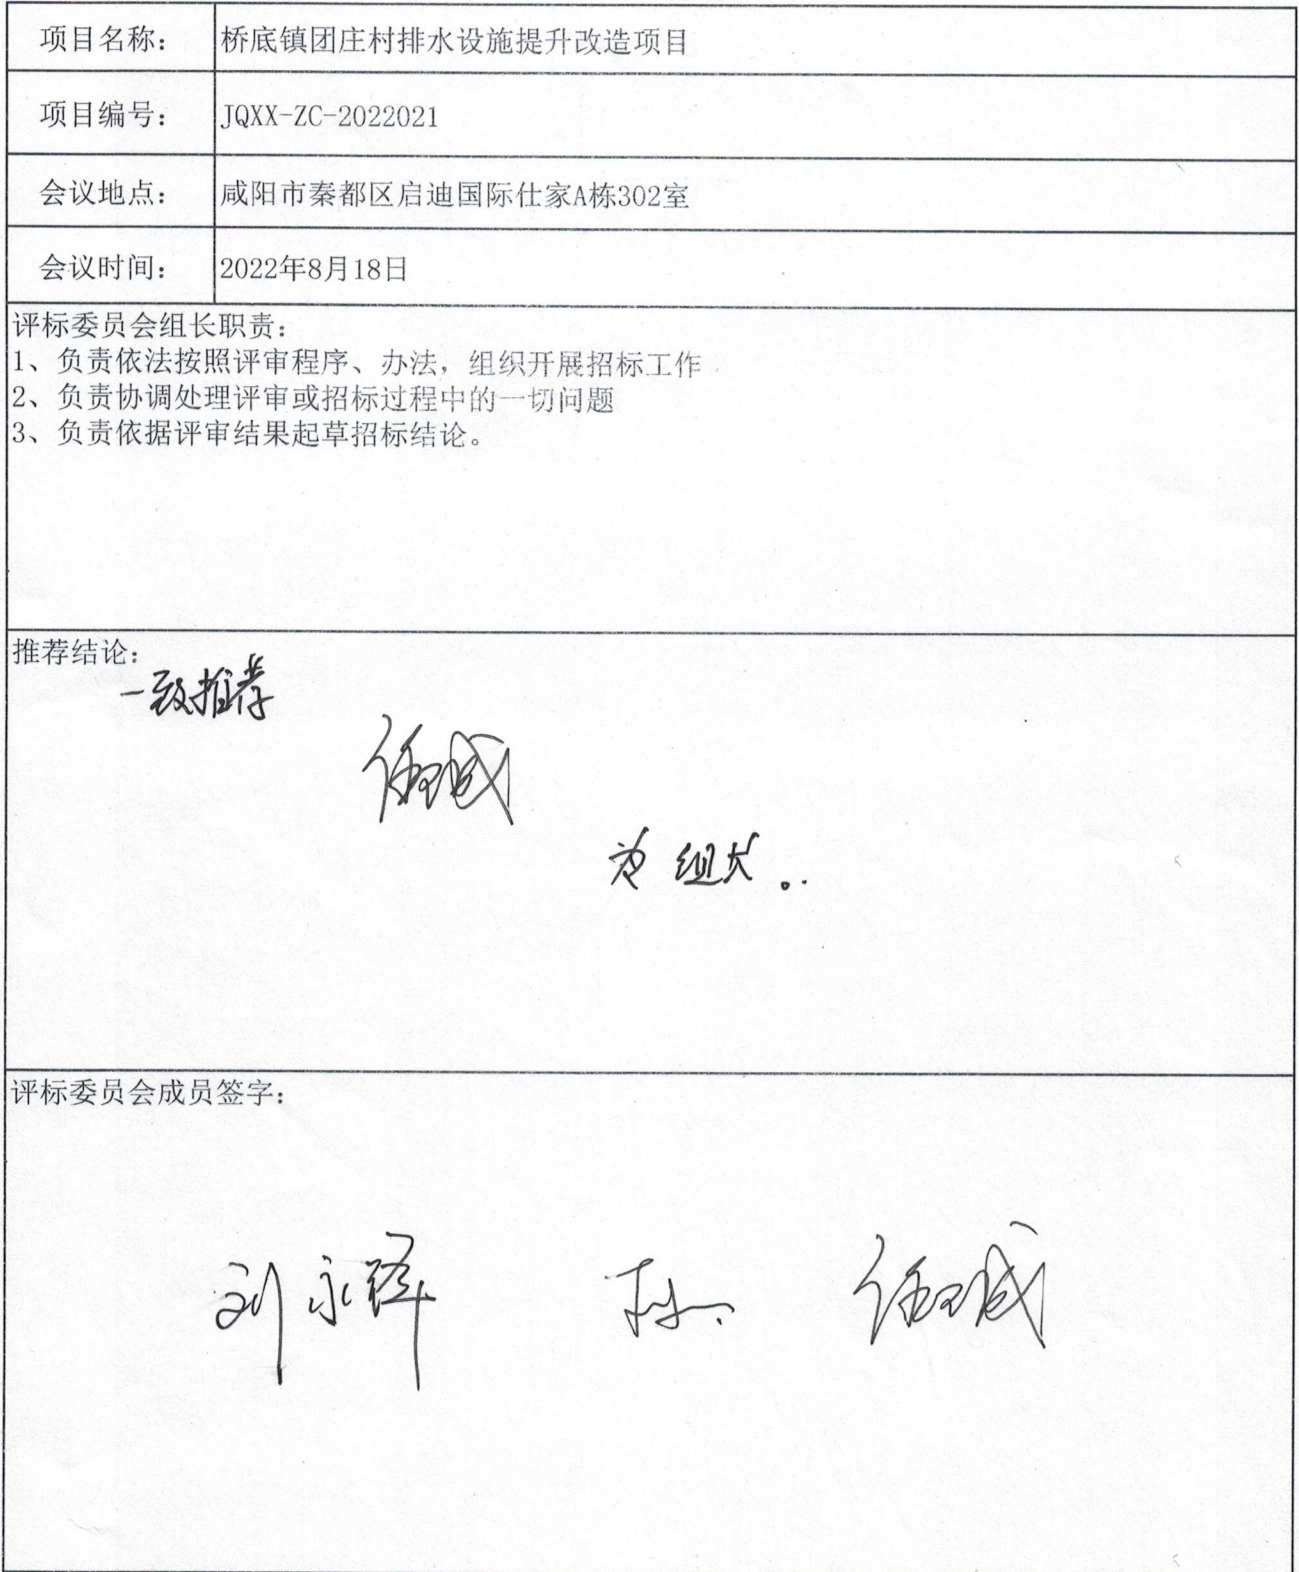 项目名称： 桥底镇团庄村排水设施提升改造项目
项目编号： JQXX-ZC-2022021
会议地点： 咸阳市秦都区启迪国际仕家A栋302室
会议时间： 2022年8月18日
评标委员会组长职责：
1、负责依法按照评审程序、办法，组织开展招标工作
2、负责协调处理评审或招标过程中的一切问题
3、负责依据评审结果起草招标结论。
推荐结论：
一致推荐
为组长。
评标委员会成员签字：